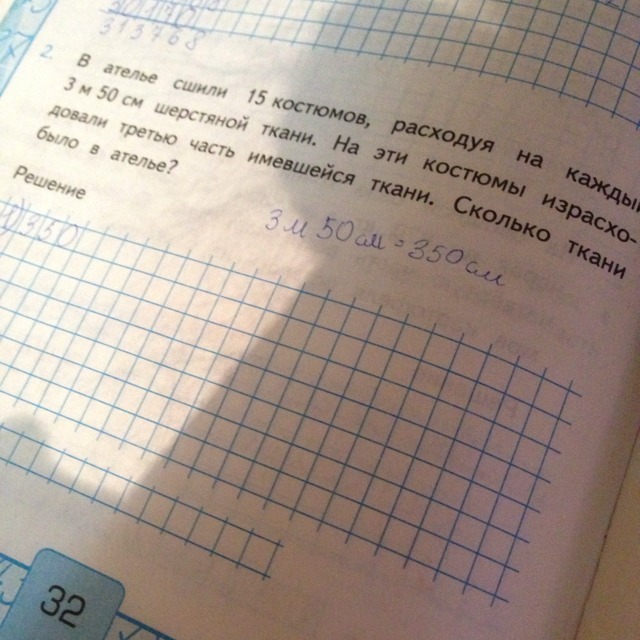 313463
2 В ателье сшили 15 костюмов, расходуя на каждый
3 м 50 см шерстяной ткани. На эти костюмы израсхо-
довали третью часть имевшейся ткани. Сколько ткани
было в ателье?
Решение
3 м 50 см = 350 см
1) 350
32